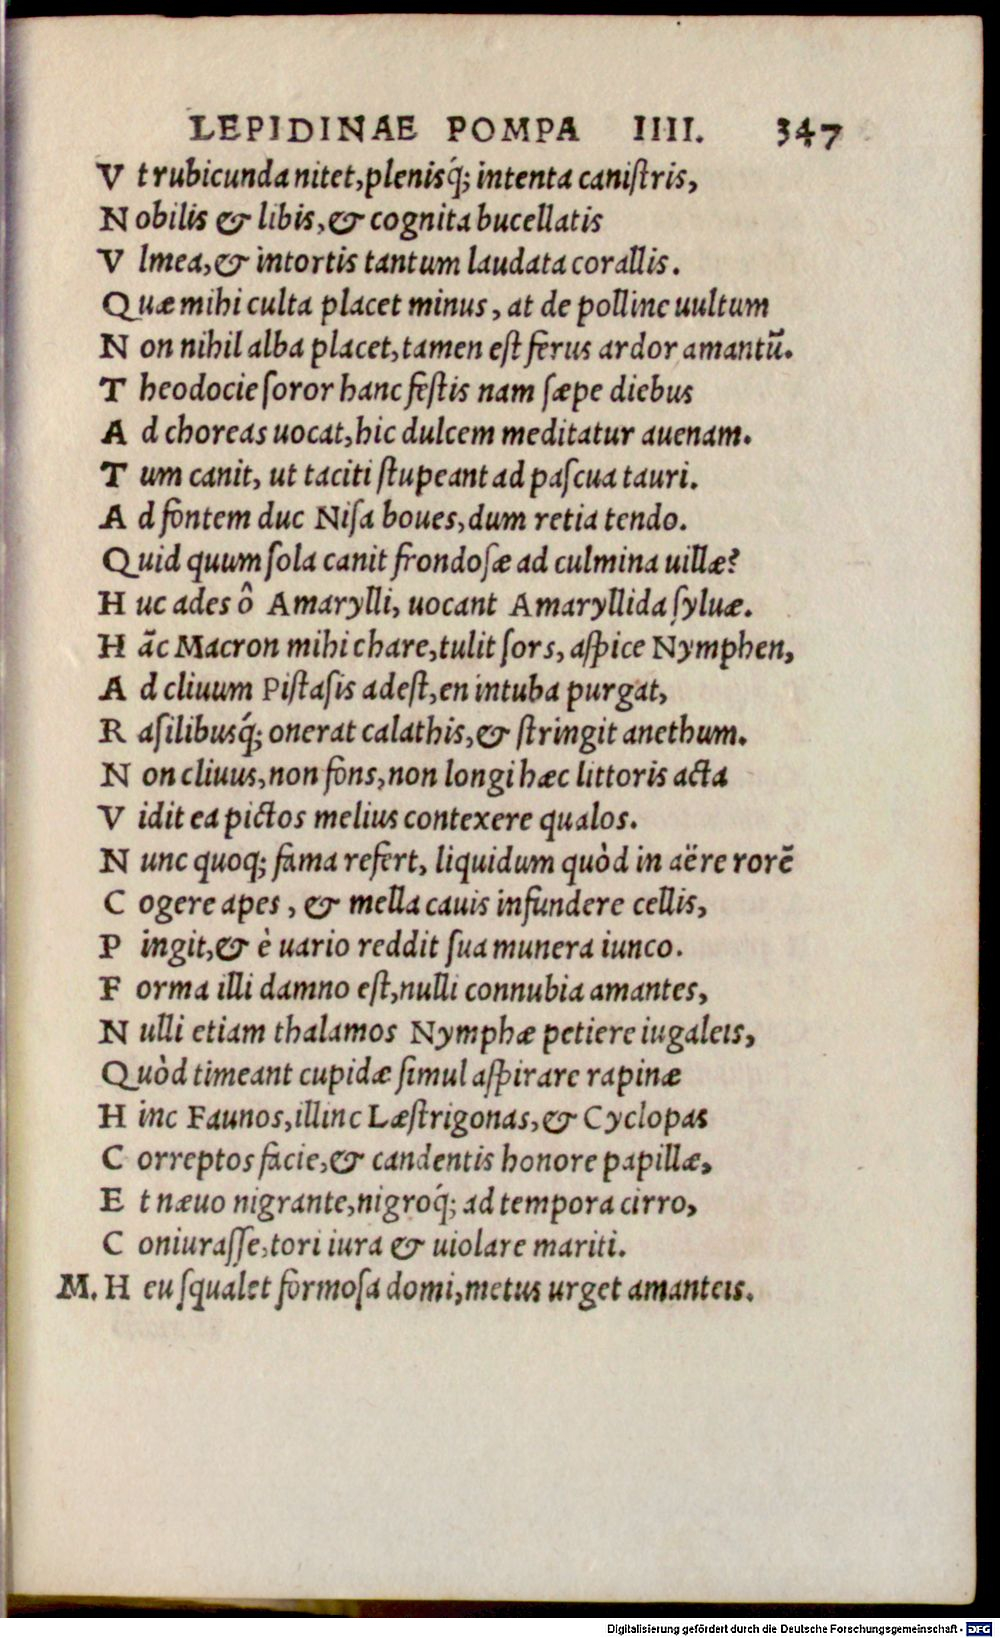 LEPIDINAE POMPA IIII. 347
V t rubicunda nitet, plenisq́; intenta canistris,
N obilis & libis, & cognita bucellatis
V lmea, & intortis tantum laudata corallis.
Quæ mihi culta placet minus, at de polline uultum
N on nihil alba placet, tamen est ferus ardor amantũ.
T heodocie soror hanc festis nam sæpe diebus
A d choreas uocat, hic dulcem meditatur auenam.
T um canit, ut taciti stupeant ad pascua tauri.
A d fontem duc Nisa boues, dum retia tendo.
Quid quum sola canit frondosæ ad culmina uillæ?
H uc ades ô Amarylli, uocant Amaryllida syluæ.
H ãc Macron mihi chare, tulit sors, aspice Nymphen,
A d cliuum Pistasis adest, en intuba purgat,
R asilibusq́; onerat calathis, & stringit anethum.
N on cliuus, non fons, non longi hæc littoris acta
V idit ea pictos melius contexere qualos.
N unc quoq; fama refert, liquidum quòd in aëre rorẽ
C ogere apes, & mella cauis infundere cellis,
P ingit, & è uario reddit sua munera iunco.
F orma illi damno est, nulli connubia amantes,
N ulli etiam thalamos Nymphæ petiere iugaleis,
Quòd timeant cupidæ simul aspirare rapinæ
H inc Faunos, illinc Læstrigonas, & Cyclopas
C orreptos facie, & candentis honore papillæ,
E t næuo nigrante, nigroq́; ad tempora cirro,
C oniurasse, tori iura & uiolare mariti.
M. H eu squalet formosa domi, metus urget amanteis.
Digitalisierung gefördert durch die Deutsche Forschungsgemeinschaft - DFG